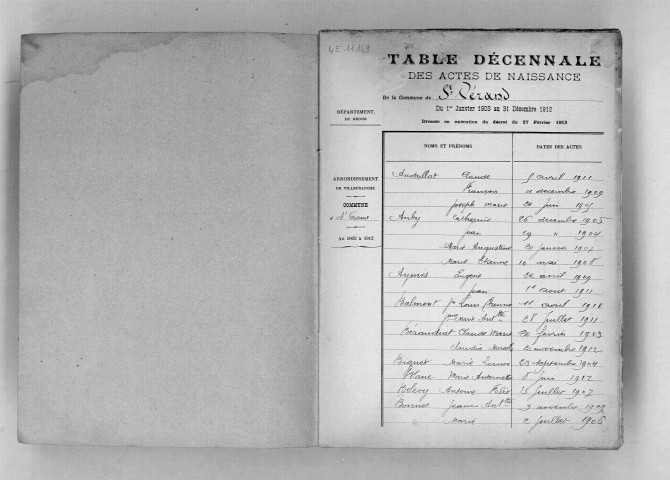 4E 11149
TABLE DÉCENNALE
DES ACTES DE NAISSANCE
De la Commune de St Vérand
Du 1er Janvier 1903 au 31 Décembre 1912
Dressée en exécution du décret du 27 Février 1903
DÉPARTEMENT
DU RHONE
ARRONDISSEMENT
DE VILLEFRANCHE
COMMUNE
St Vérand
An 1903 à 1912
NOMS ET PRÉNOMS DATES DES ACTES
Claude avril 1911
François décembre 1909
Joseph Marie juin
Aubry Catherine 26 décembre 1905
Jean 29 " 1904
Marie Augustine janvier
Marie Etienne 10 mai 1908
Aymes Eugène avril 1909
Jean 1er août 1911
Balmont Louis 11 avril 1910
Marie Antte 28 juillet 1911
Béraudiat Claude Marie février 1903
Claudia novembre 1912
Marie 23 septembre 1904
Marie Antoinette 8 juin 1912
Antoine 15 juillet 1907
Bonnet Jeanne Antte 3 novembre
Marie 2 juillet 1906